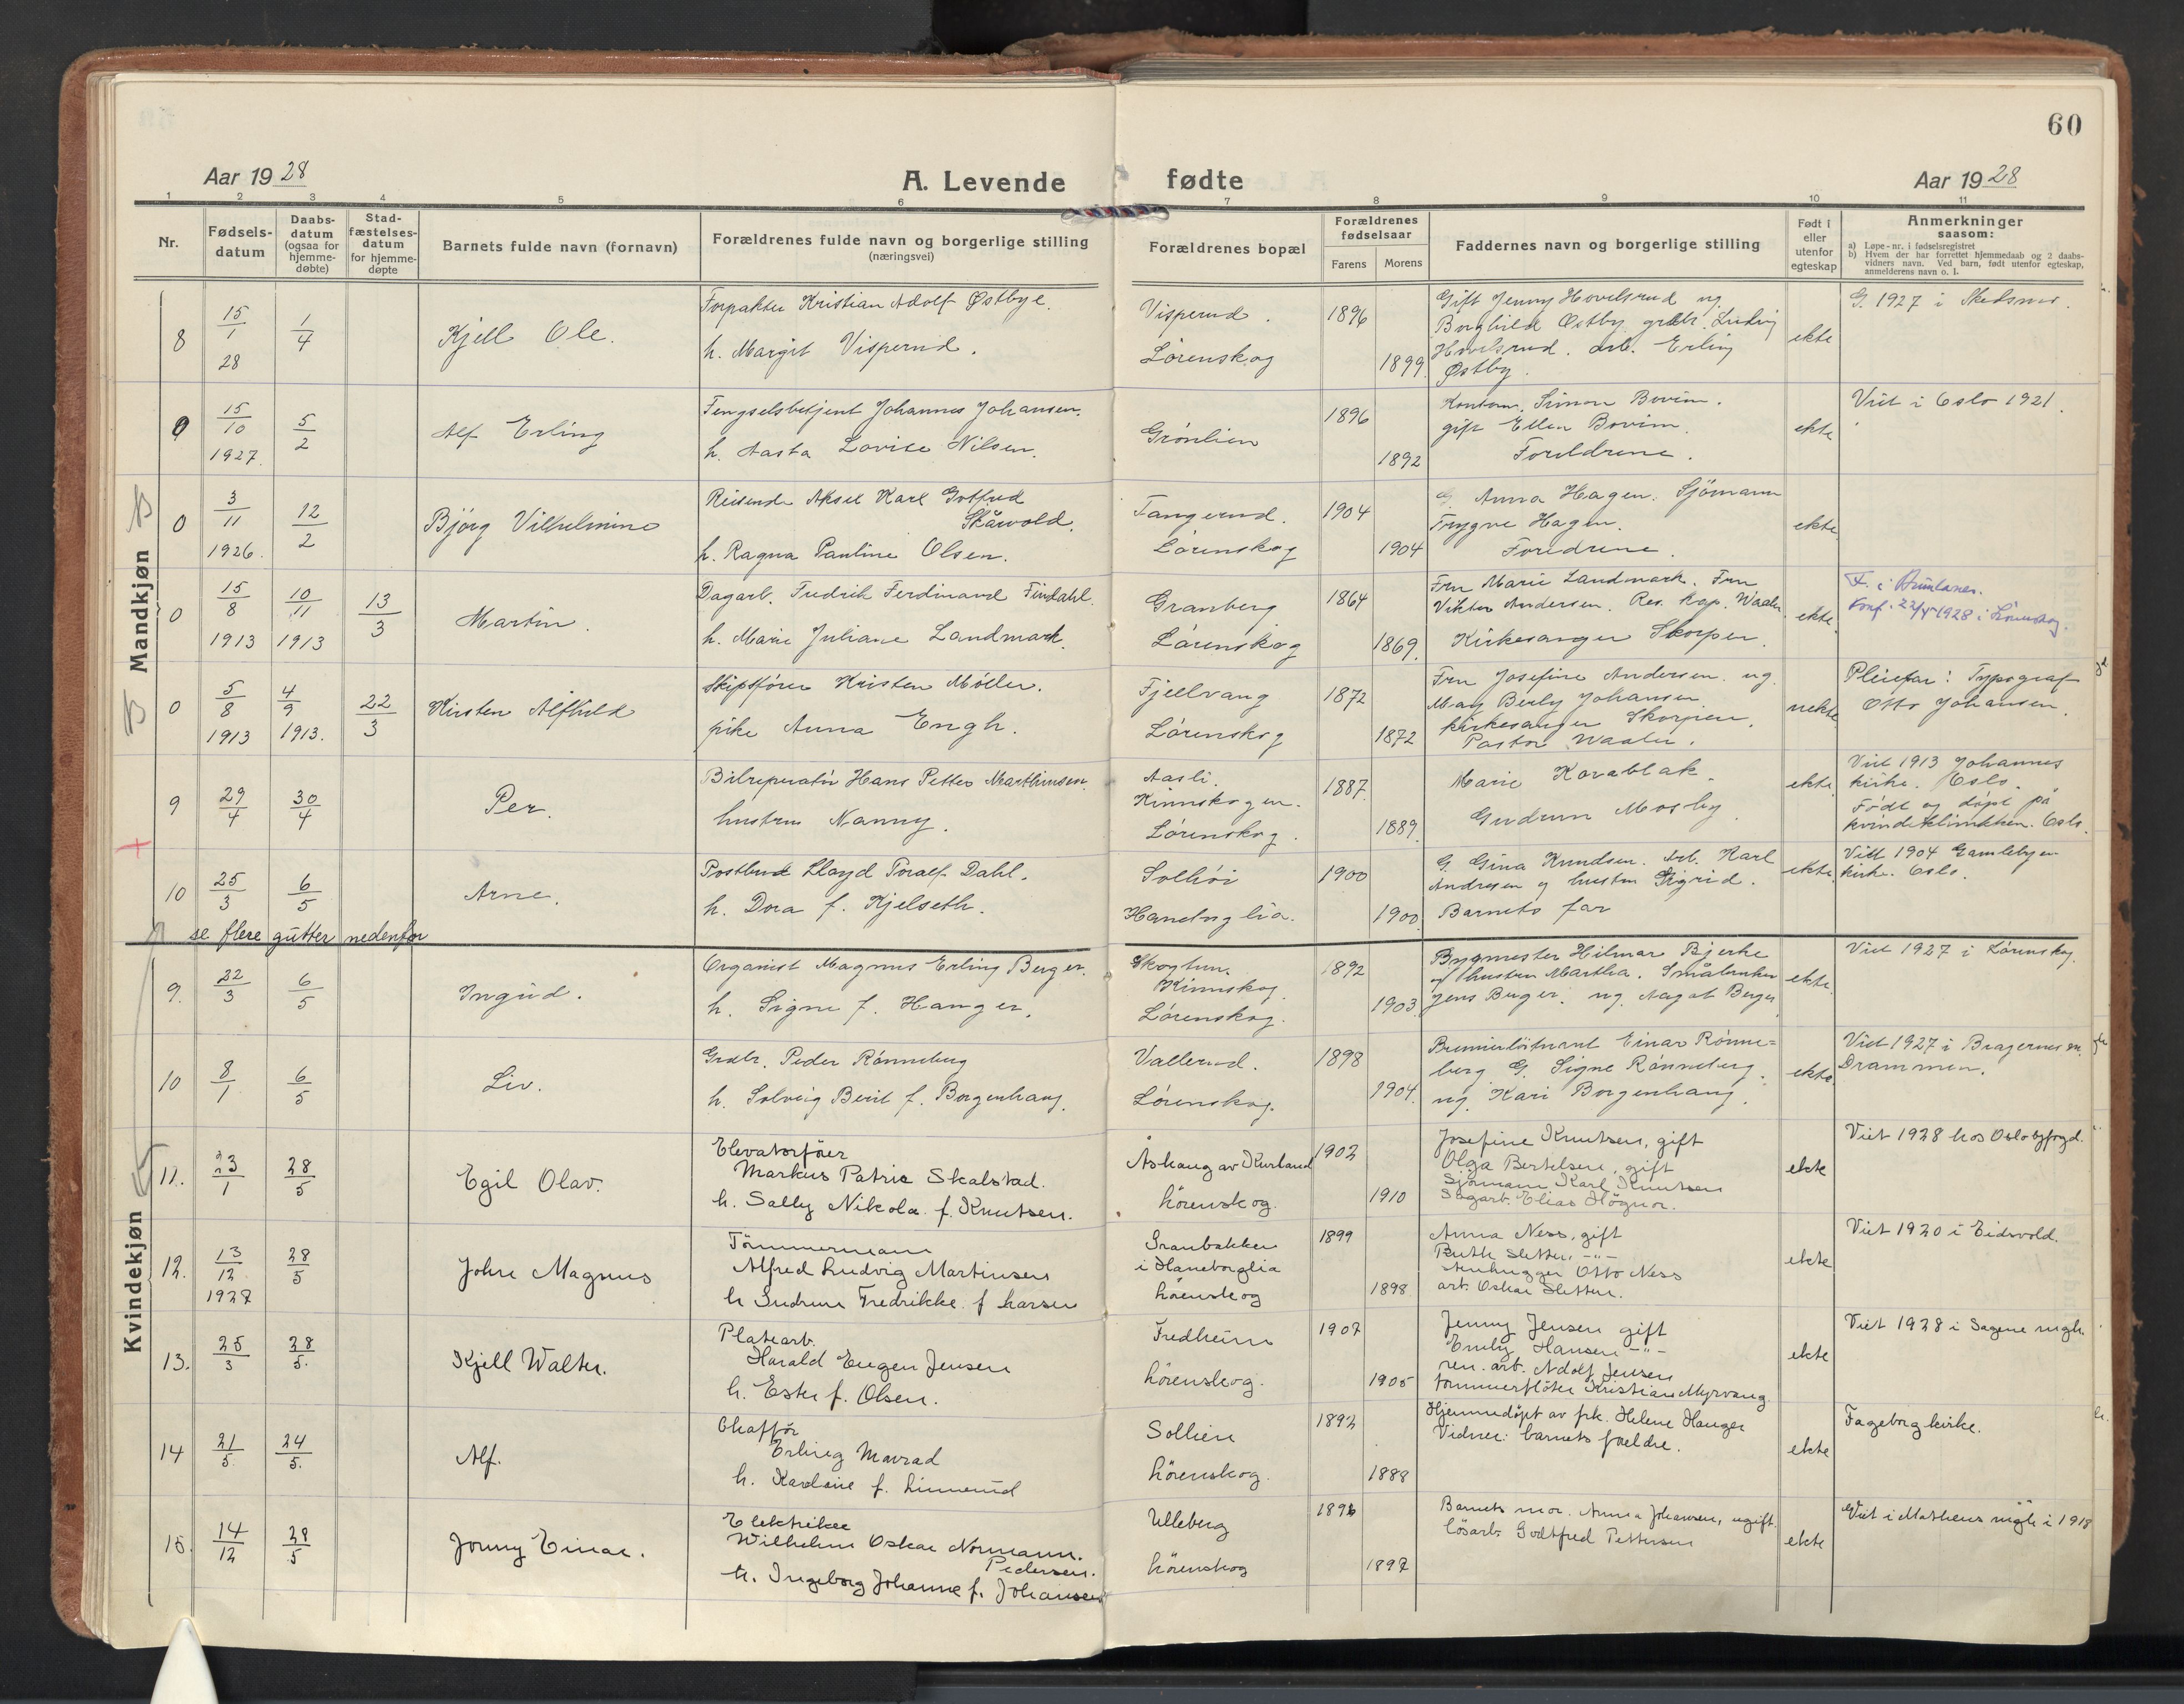 60
Aar 1928
A. Levende fødte
Aar 1928
1 2 3 4 5 6 7 8 9 10 11
Nr.
Fødsels-
datum
Daabs-
datum
(ogsaa for
hjemme-
døbte)
Stad-
fæstelses-
datum
for hjemme-
døpte
Barnets fulde navn (fornavn)
Forældrenes fulde navn og borgerlige stilling
(næringsvei)
Forældrenes bopæl
Forældrenes
fødselsaar
Farens
Morens
Faddernes navn og borgerlige stilling
Født i
eller
utenfor
egteskap
Anmerkninger
saasom:
a) Løpe-nr. i fødselsregistret
b) Hvem der har forrettet hjemmedaab og 2 daabs-
vidners navn. Ved barn, født utenfor egteskap,
anmelderens navn o. l.
Mandkjøn
8
15/1
28
1/4
Kjell Ole.
Forpakter Kristian Adolf Østbye.
h. Margit Visperud.
Visperud.
Lørenskog
1896
1899.
Gift Jenny Hovelsrud ug.
Borghild Østby. grdbr. Ludvig
Hovelsrud. arb. Erling
Østby.
ekte
G. 1927 i Skedsmo.
0
15/10
1927.
5/2
Alf Erling
Fengselsbetjent Johannes Johansen.
h. Aasta Lovise Nilsen.
Grønlien
1896
1892
Simon Bovim.
gift Ellen Bovim.
Foreldrene.
ekte
Viet i Oslo 1921.
0
3/11
1926.
12/2
Bjørg Vilhelmine
Reisende Aksel Karl Gotfred
Skårvold.
h. Ragna Pauline Olsen.
Tangerud.
Lørenskog
1904
1904
G. Anna Hagen. Sjømann
Trygve Hagen.
Foreldrene.
ekte
0
15/8
1913
10/11
1913
13/3
Martin.
Dagarb. Fredrik Ferdinand Findahl.
h. Marie Juliane Landmark.
Granberg
Lørenskog
1864
1869.
Fru Marie Landmark. Fru
Viktor Andersen. Res. kap. Waaler
Kirkesanger Skorpen.
ekte
F. i
Konf. 1928 i Lørenskog.
0
5/8
1913
4/9
1913.
22/3
Kirsten Alfhild
Skipsfører Kristen Möller.
pike Anna Engh.
Fjellvang
Lørenskog
1872
1872
Fru Josefine Andersen. ug.
May Berly Johansen.
kirkesanger Skorpen.
Pastor Waaler.
uekte
Pleiefar: Typograf
Otto Johansen.
9
29/4
30/4
Per.
Bilreperatør Hans Petter Marthinsen.
hustru Nanny.
Aasli.
Kinnskogen.
Lørenskog.
1887.
1889.
Marie Korablak.
Gudrun Mosby
ekte
Viet 1913 Johannes
kirke. Oslo.
Født og døpt på
kvindeklinikken. Oslo.
10
25/3
6/5
Arne.
Postbud Lloyd Toralf Dahl.
h. Dora f. Kjelseth.
Solhöi
Haneborglia.
1900
1900
G. Gina Knudsen. Arb. Karl
Andresen og hustru Sigrid.
Barnets far
ekte
Viet 1904 Gamlebyen
kirke. Oslo.
se flere gutter nedenfor
Kvindekjøn
9.
22/3
6/5
Ingrid.
Organist Magnus Erling Berger.
h. Signe f. Hanger.
Skogtun.
Kinnskog.
Lørenskog.
1892
1903.
Bygmester Hilmar Bjerke
og hustru Martha. Småbruker
Jens Berger. ug. Aagot Berger
ekte
Viet 1927 i Lørenskog.
10
8/1
6/5
Liv.
Grdbr. Peder Rønneberg
h. Solveig Berit f. Borgenhaug.
Vallerud.
Lørenskog.
1898
1904.
Premierløitnant Einar Rønne-
berg G. Signe Rønneberg.
ug. Kari Borgenhaug.
ekte
Viet 1927 i Bragernes m.
Drammen.
11.
23/1
28/5
Egil Olav.
Elevatorfører
Markus Patric Skalstad.
h. Sally Nikola. f. Knutsen.
Åshaug av Kurland
Lørenskog.
1902
1910
Josefine Knutsen, gift
Olga Bertelsen, gift
Sjømann Karl Knutsen
Sagarb. Elias Høgmo.
ekte
Viet 1928 hos Oslo byfogd.
12.
13/12
1927
28/5
John Magnus
Tömmermann
Alfred Ludvig Martinsen
h. Gudrun Fredrikke. f Larsen
Granbakken
i Haneborglia
Lørenskog
1899
1898
Anna Ness, gift
Ruth Sletten, -"-
stenhugger Otto Ness
arb. Oskar Sletten.
ekte
Viet 1920 i Eidsvold.
13.
25/3
28/5.
Kjell Walter.
Platearb.
Harald Eugen Jensen
h. Ester f. Olsen.
Fredheim
Lørenskog.
1907
1905
Jenny Jensen gift
Emily Hansen -"-
ren. arb. Adolf Jensen
tømmerfløter Kristian Myrvang.
ekte
Viet 1928 i Sagene mgh.
14
21/5.
24/5.
Alf.
Chaffør
Erling Mavrad
h. Karoline f. Linnerud
Sollien
Lørenskog.
1892
1888
Hjemmedøpt av frk. Helene Hauger
Vidner: barnets forældre.
ekte
Fagerborg kirke.
15.
14/12
28/5
Jonny Einar.
Elektriker
Wilhelm Oskar Normann.
Pedersen.
h. Ingeborg Johanne f. Johansen
Ulleberg
Lørenskog
1896
1897
Barnets mor. Anna Johansen, ugift.
løsarb. Godtfred Pettersen
ekte
Viet i Matheus mgh i 1918